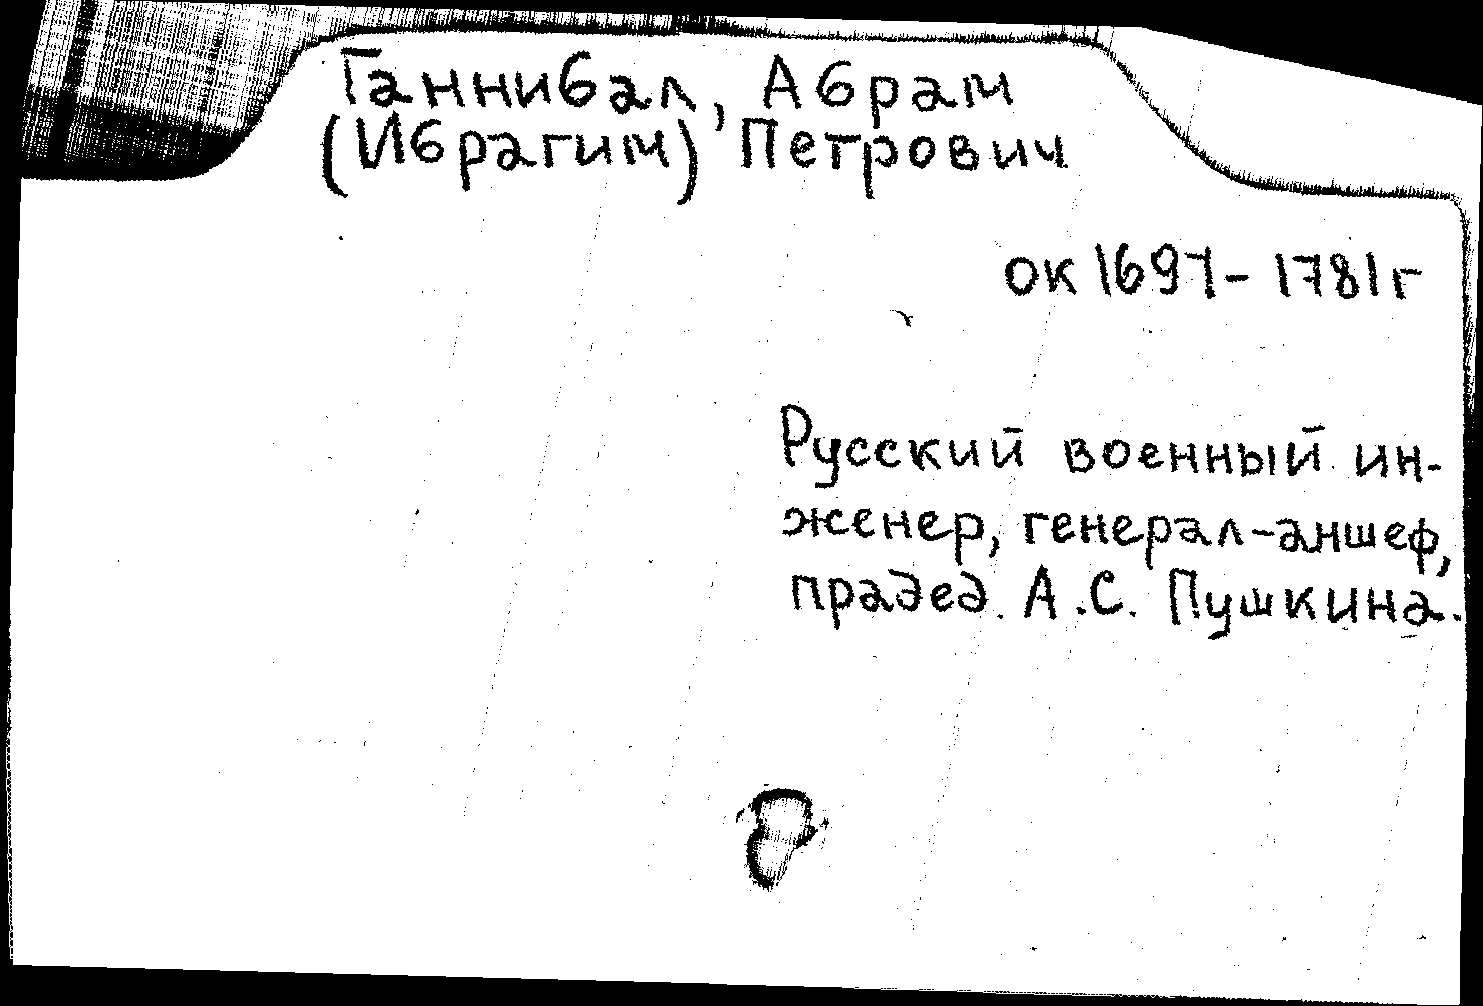 Ганнибал, Абрам
(Ибрагим) Петрович
ок 1697 - 1781 г
Русский военный ин-
женер, генерал-аншеф,
прадед А.С. Пушкина.